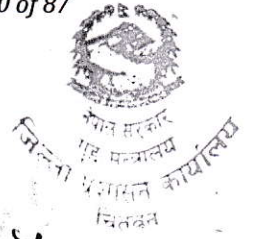 0 of 87
नेपाल सरकार
गृह मन्त्रालय
जिल्ला प्रशासन कार्यालय
चितवन